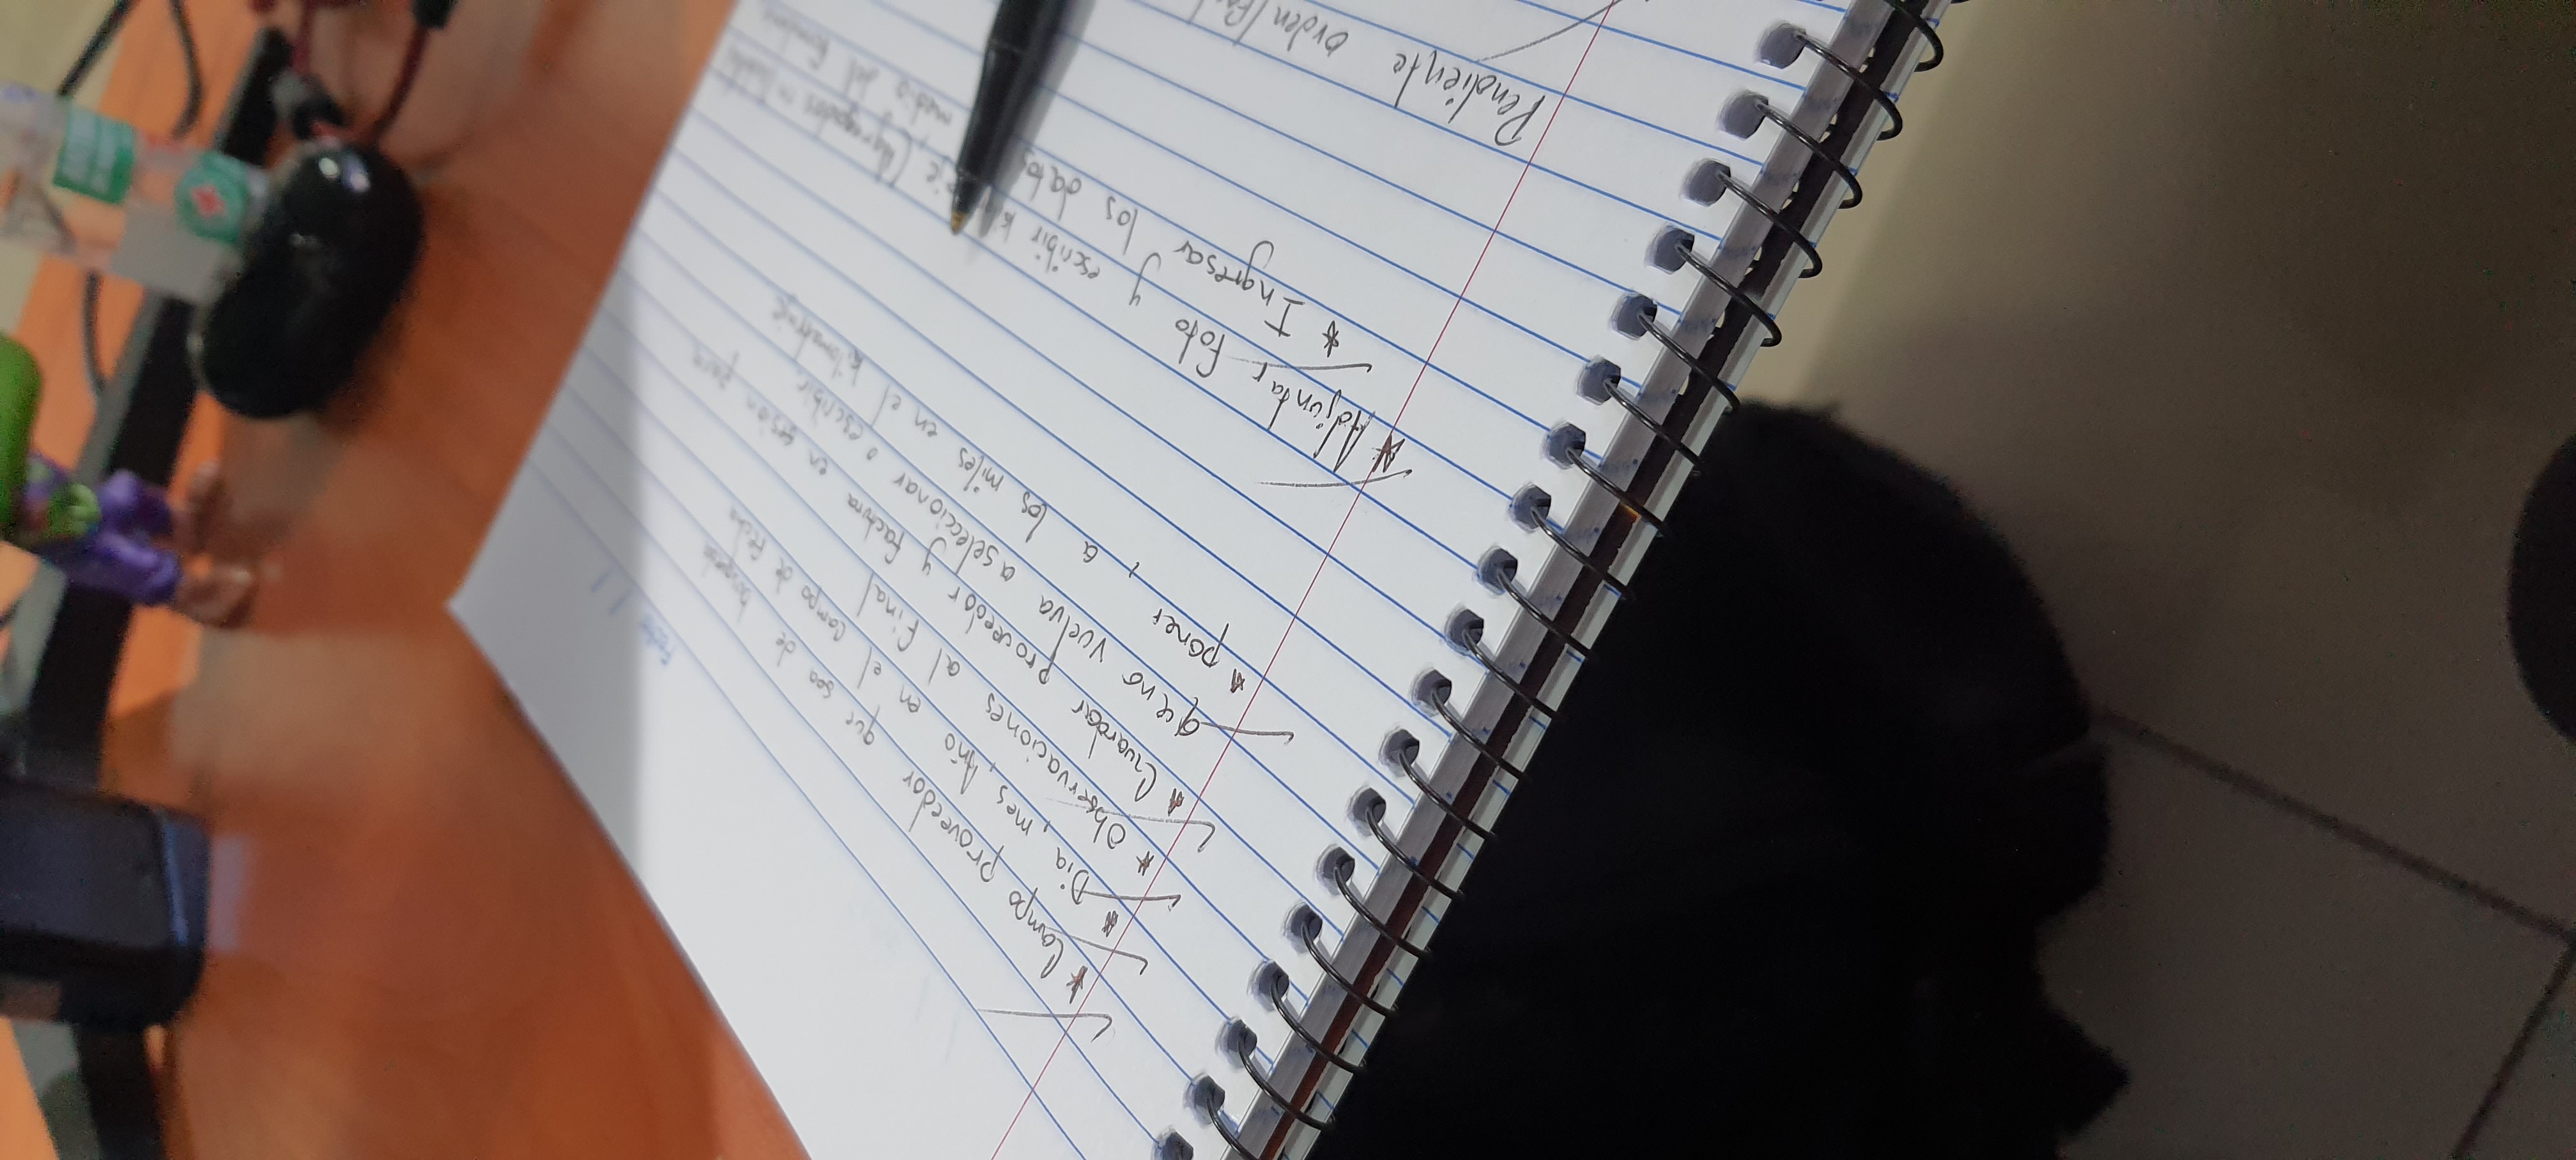 Fecha
* Campo proveedor que sea de busqueda
* Dia, mes, Año en el campo de fecha
* Observaciones al final
* Guardar proveedor y factura en sesion para
que no vuelva a seleccionar o escribir
* poner , a los miles en el kilometraje
* Adjuntar foto y escribir
* Ingresar los datos medio del
Pendiente orden/